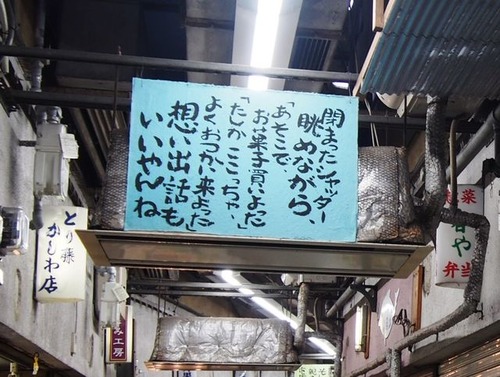 閉まったシャッター
眺めながら、
「あそこで、
お菓子買いよった
「たしかここ、ぢゃ、
よくおつかい来よった」
想い出話も
いいやんね
とり藤
かしわ店
み工房
菜
や
弁当